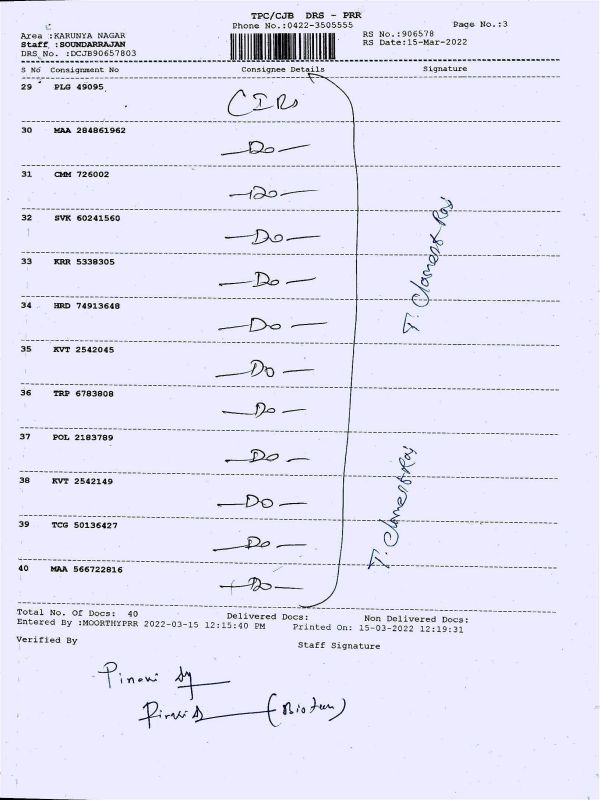 TPC/CJB DRS - PRR
Phone No.:0422-3505555 Page No.:3
Area :KARUNYA NAGAR RS No.:906578
Staff :SOUNDARRAJAN RS Date:15-Mar-2022
DRS No. :DCJB90657803
S No Consignment No Consignee Details Signature
29 PLG 49095
CIRs
30 MAA 284861962
-Do-
31 CMM 726002
-Do-
32 SVK 60241560
-Do-
33 KRR 5338305
-Do-
34 HRD 74913648
-Do-
35 KVT 2542045
-Do-
36 TRP 6783808
-Do-
37 POL 2183789
-Do-
38 KVT 2542149
-Do-
39 TCG 50136427
-Do-
40 MAA 566722816
-Do-
T. Clament Raj
T. Clament Raj
Total No. Of Docs: 40 Delivered Docs: Non Delivered Docs:
Entered By :MOORTHYPRR 2022-03-15 12:15:40 PM Printed On: 15-03-2022 12:19:31
Verified By Staff Signature